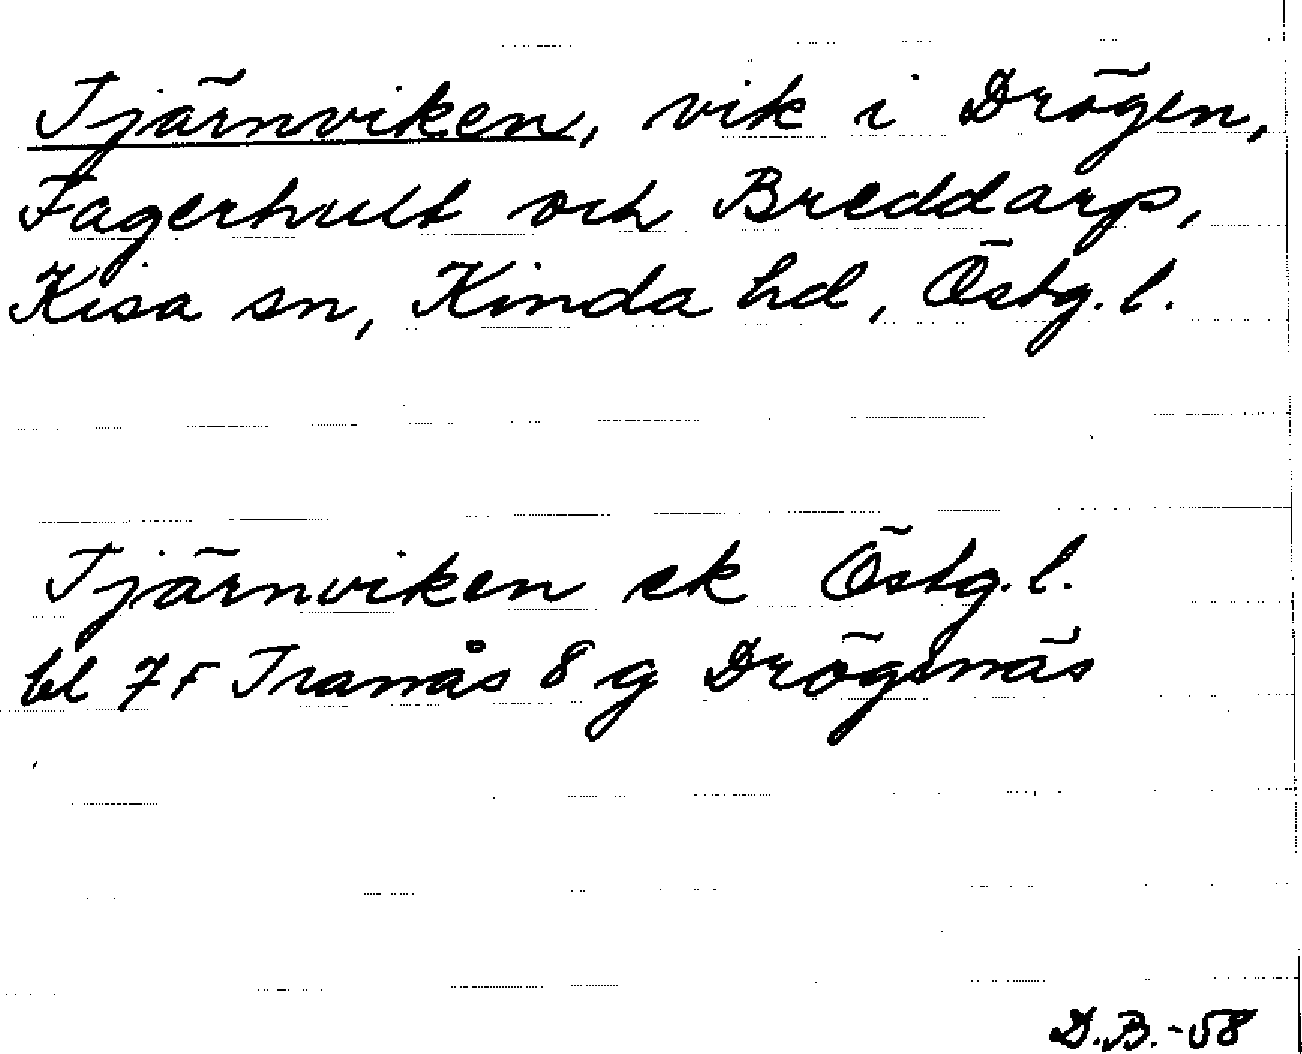 Tjärnviken, vik i Drögen,
Fagerhult och Breddarp,
Kisa sn, Kinda hd, Östg. l.
Tjärnviken ek Östg. l.
bl 7F Tranås 8 g Drögsnäs
D.B.-58